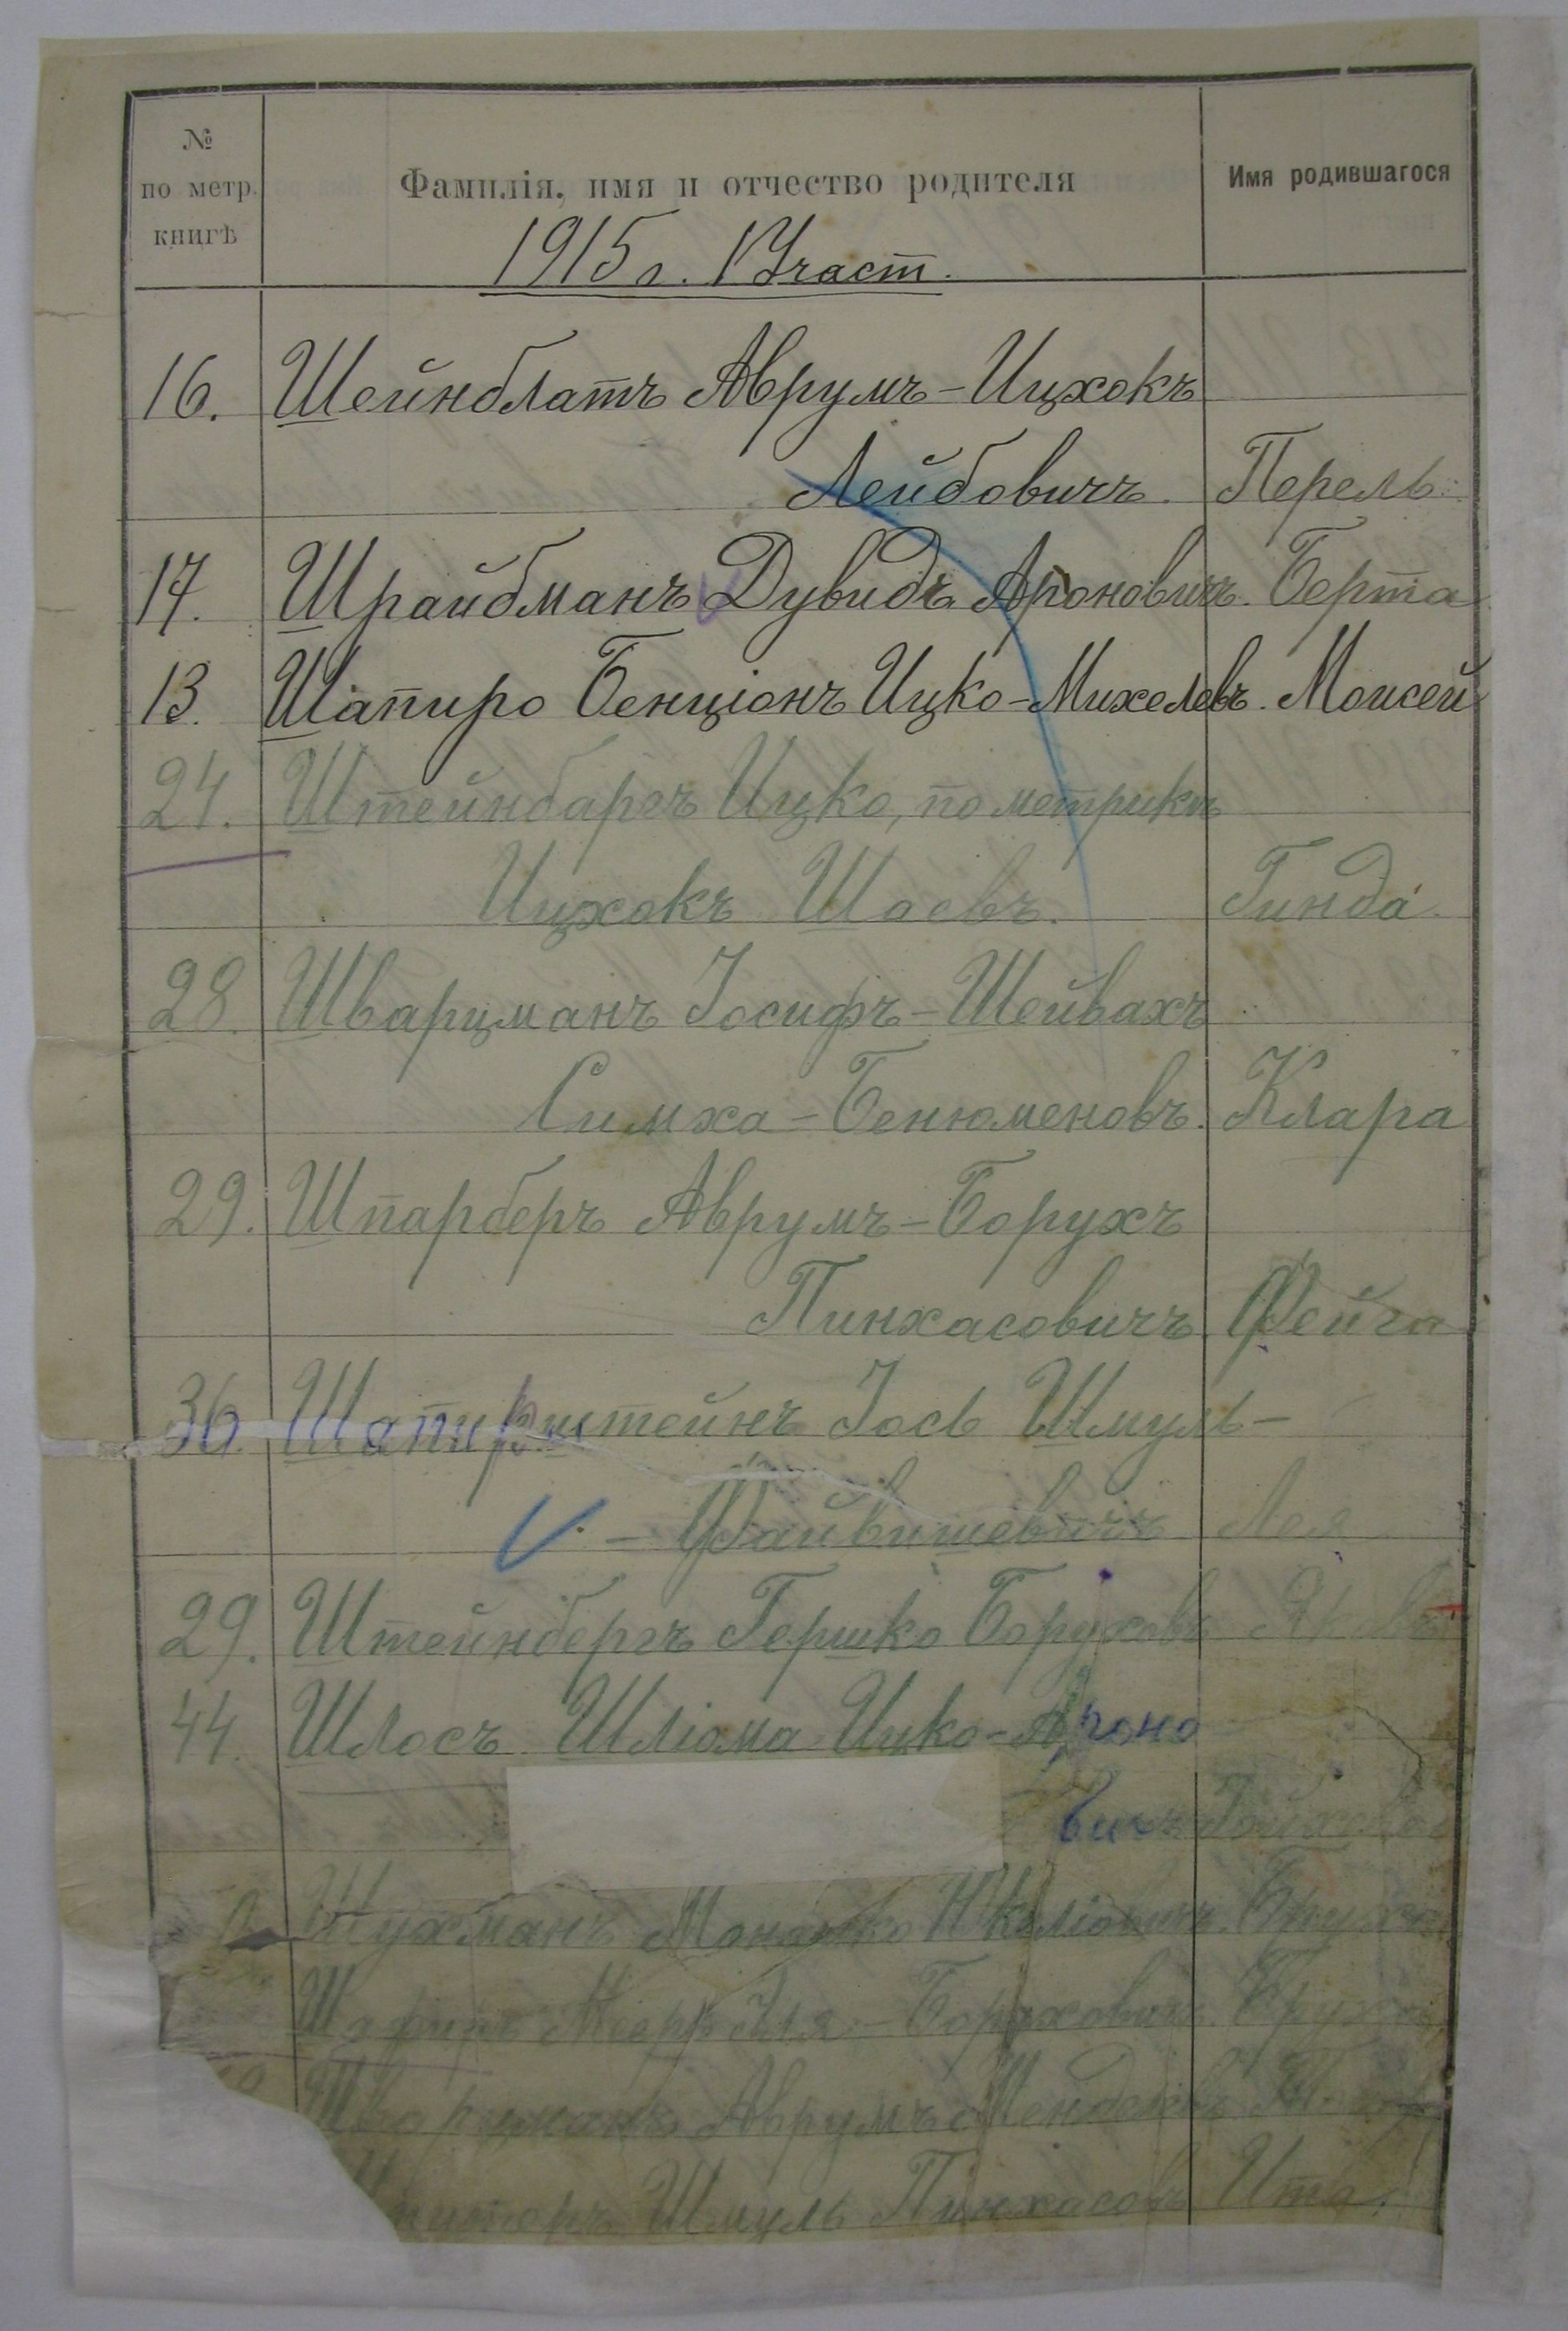 №
по метр.
книгѣ
Фамилія, имя и отчество родителя
Имя родившагося
1915 г. 1 Участ.
16. Шейнблатъ Аврумъ-Ицхокъ
Лейбовичъ. Перель
17. Шрайбманъ Дувидъ Ароновичъ. Берта
13. Шапиро Бенціонъ Ицко-Михелевъ. Моисей
24. Штейнбаргъ Ицко, по метрикѣ
Ицхокъ Шоевъ. Гинда
28. Шварцманъ Іосифъ-Шейвахъ
Симха-Бенюменовъ. Клара
29. Шпарберъ Аврумъ-Борухъ
Пинхасовичъ. Фейга
36. Шапирштейнъ Іось Шмуль-
- Файвишевичъ Лея
29. Штейнбергъ Гершко Боруховъ Яковъ
44. Шлосъ Шліома Ицко-Ароно
вичъ
Шухманъ
Меер Боруховичъ Бруха
Шварцманъ Аврумъ Менделевъ
Шмуль Пинхасовъ Ита